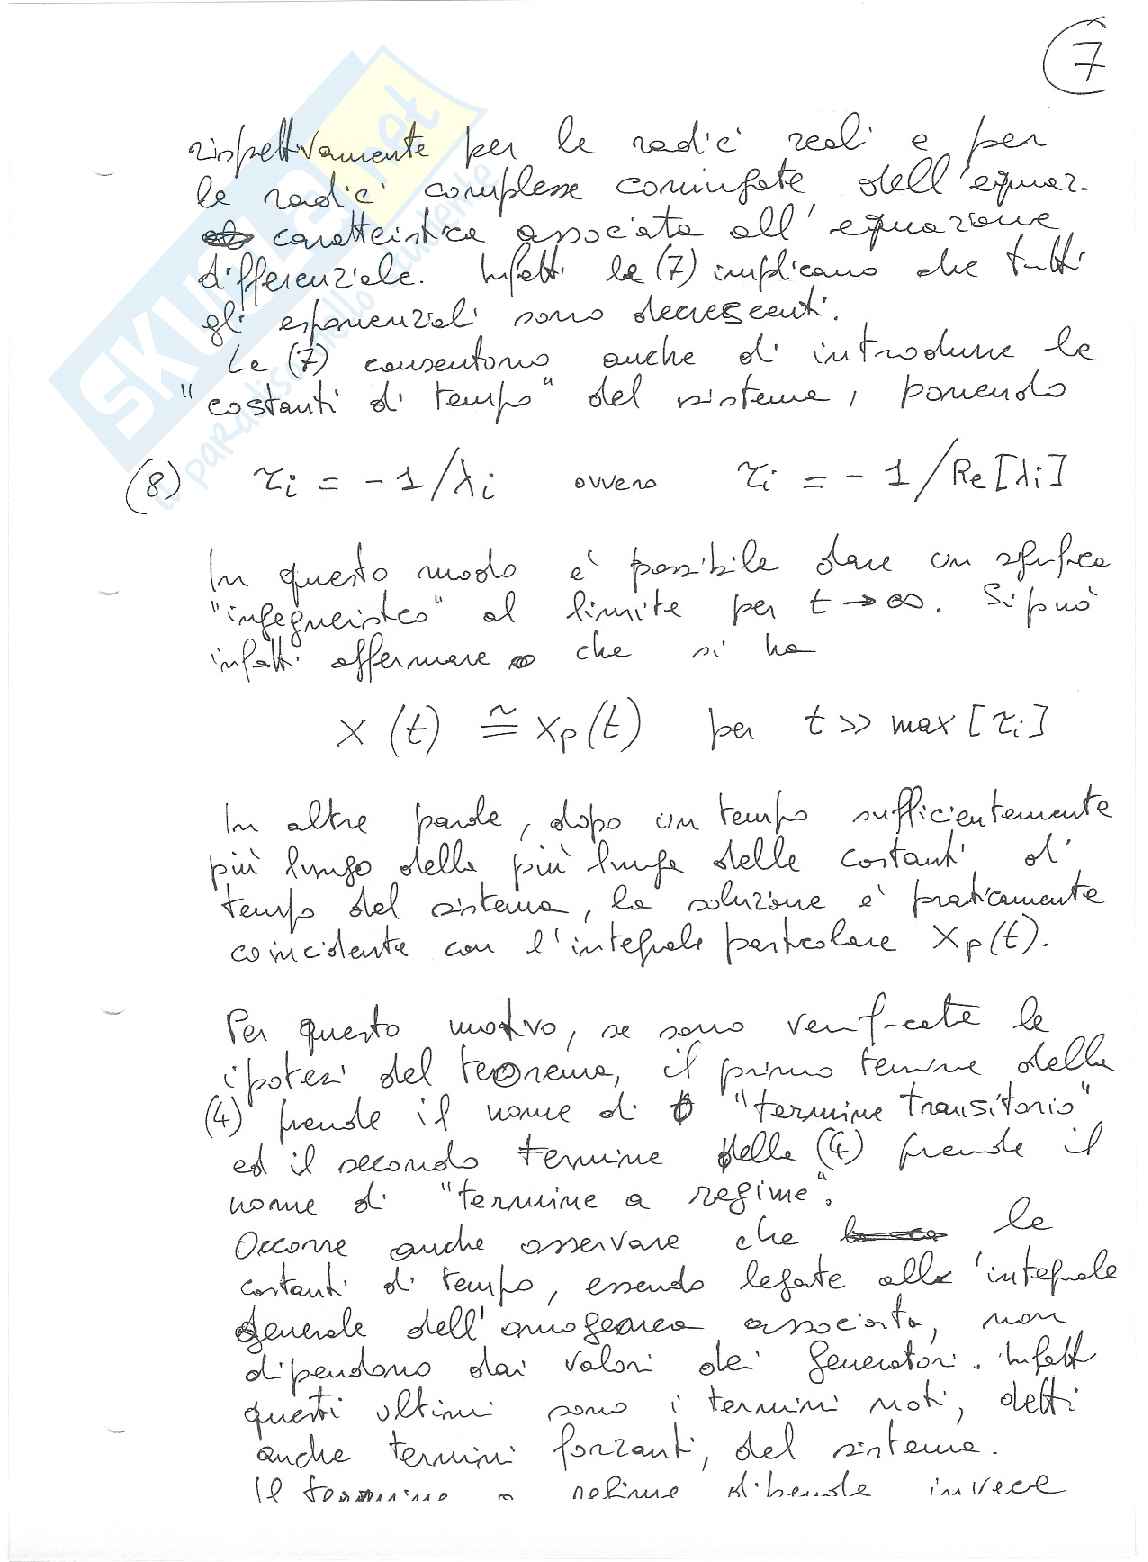 7
rispettivamente per le radici reali e per
le radici complesse coniugate dell'equaz.
caratteristica associata all'equazione
differenziale. Infatti le (7) implicano che tutti
gli esponenziali sono decrescenti.
Le (7) consentono anche di introdurre le
"costanti di tempo" del sistema, ponendo
(8) τi = -1/λi ovvero τi = -1/Re[λi]
In questo modo è possibile dare un
"ingegneristico" al limite per t → ∞. Si può
infatti affermare che si ha
x(t) ≅ xp(t) per t >> max[τi]
In altre parole, dopo un tempo sufficientemente
più lungo della più lunga delle costanti di
tempo del sistema, la soluzione è praticamente
coincidente con l'integrale particolare xp(t).
Per questo motivo, se sono verificate le
ipotesi del teorema, il primo termine della
(4) prende il nome di "termine transitorio"
ed il secondo termine della (4) prende il
nome di "termine a regime".
Occorre anche osservare che le
costanti di tempo, essendo legate all'integrale
generale dell'omogenea associata, non
dipendono dai valori dei generatori. Infatti
questi ultimi sono i termini noti, detti
anche termini forzanti, del sistema.
Il termine a regime dipende invece
SKUOLA.net